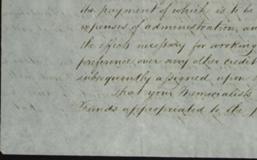 the payment of which is to be
expenses of administration, an
the effects necessary for working
preference over any other credit
subsequently assigned upon
That your Memorialists
Funds appropriated to the p